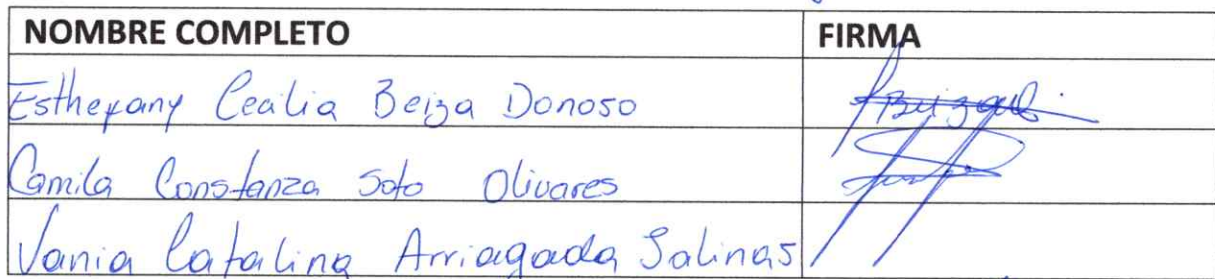 NOMBRE COMPLETO FIRMA
Esthefany Cecilia Beiza Donoso
Camila Constanza Soto Olivares
Vania Catalina Arriagada Salinas